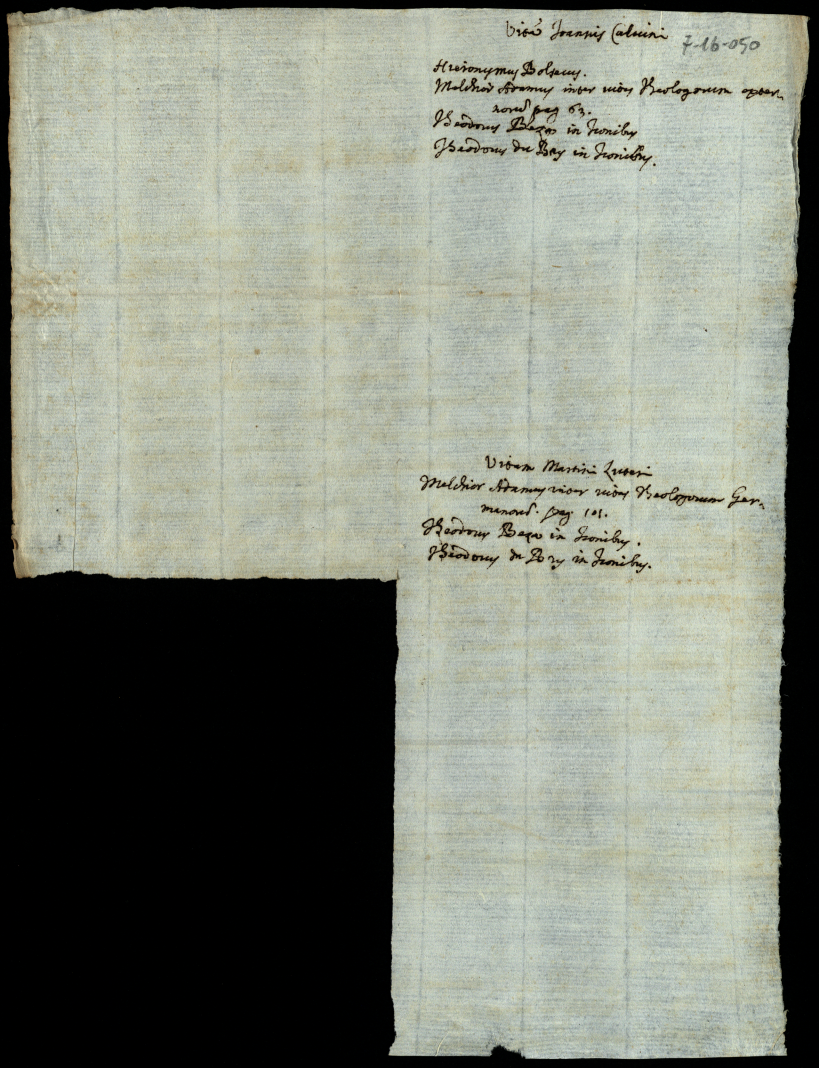 Vitã Joannis Calvini 7-16-050
Hieronymus Bolsecus.
Melchior Adamus inter vitas Theologorum exter-
norũ pag 63.
Theodorus Bezas in Iconibus
Theodorus du Bry in Iconibus.
Vitam Martini Luteri
Melchior Adamus inter vitas Theologorum Ger-
manorũ. pag. 101.
Theodorus Beza in Iconibus.
Theodorus du Bry in Iconibus.